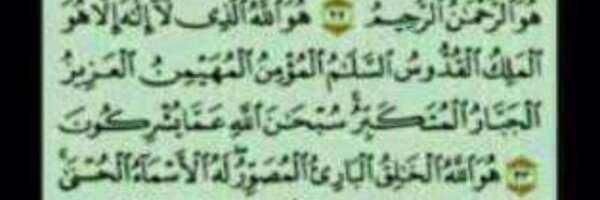 هُوَ ٱلرَّحْمَٰنُ ٱلرَّحِيمُ ٢٢ هُوَ ٱللَّهُ ٱلَّذِى لَآ إِلَٰهَ إِلَّا هُوَ
ٱلْمَلِكُ ٱلْقُدُّوسُ ٱلسَّلَٰمُ ٱلْمُؤْمِنُ ٱلْمُهَيْمِنُ ٱلْعَزِيزُ
ٱلْجَبَّارُ ٱلْمُتَكَبِّرُ سُبْحَٰنَ ٱللَّهِ عَمَّا يُشْرِكُونَ
٢٣ هُوَ ٱللَّهُ ٱلْخَٰلِقُ ٱلْبَارِئُ ٱلْمُصَوِّرُ لَهُ ٱلْأَسْمَآءُ ٱلْحُسْنَىٰ